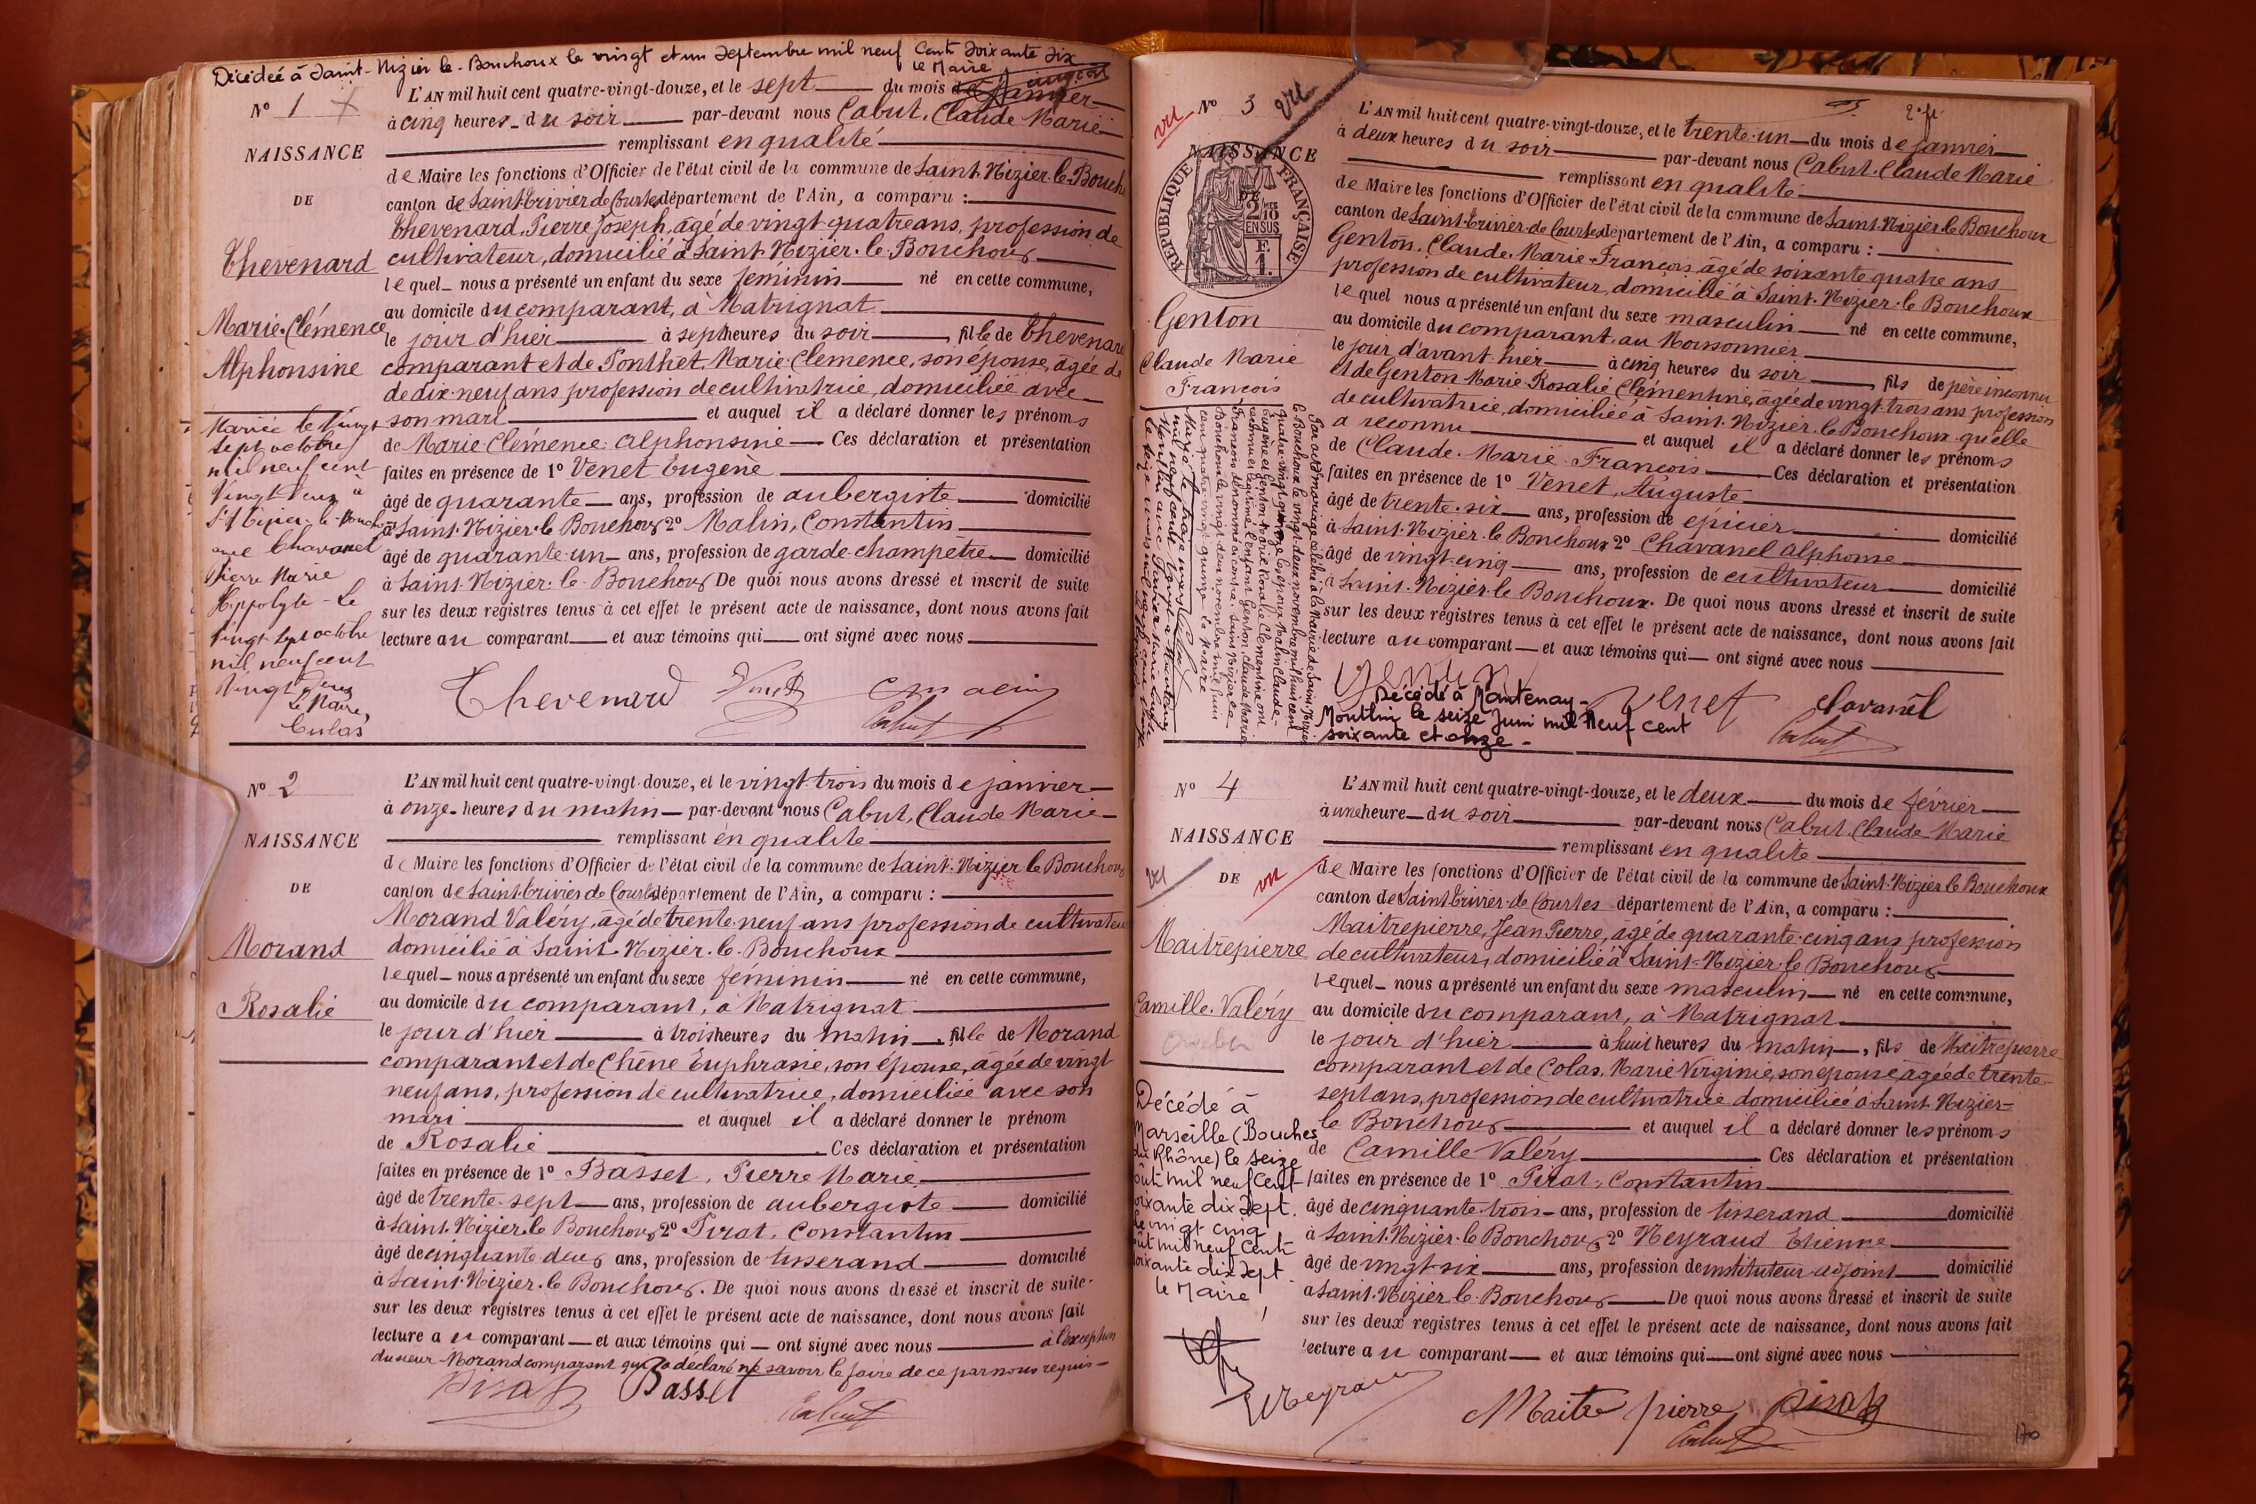 Décédée à Saint-Nizier-le-Bouchoux le vingt et un Septembre mil neuf Cent soixante dix
le Maire
N° 1
NAISSANCE
DE
Thevenard
Marie-Clémence
Alphonsine
Mariée le Vingt
sept octobre
mil neuf cent
Vingt Deux à
St Nizier-le-Bouchoux
avec Chavanel
Pierre Marie
Hippolyte - Le
vingt-sept octobre
mil neuf cent
Vingt Deux
Le Maire,
Culas
L'AN mil huit cent quatre-vingt-douze, et le sept du mois de janvier
à cinq heures du soir par-devant nous Cabut, Claude Marie
remplissant en qualité
de Maire les fonctions d'Officier de l'état civil de la commune de Saint-Nizier-le-Bouch
canton de Saint-Trivier de Courtes département de l'Ain, a comparu :
Thevenard, Pierre Joseph, âgé de vingt-quatre ans, profession de
cultivateur, domicilié à Saint-Nizier-le-Bouchoux
lequel nous a présenté un enfant du sexe féminin né en cette commune,
au domicile du comparant, à Matrignat
le jour d'hier à sept heures du soir, fille de Thevenard
comparant et de Ponthet, Marie-Clémence, son épouse, âgée de
de dix-neuf ans profession de cultivatrice, domiciliée avec
son mari et auquel il a déclaré donner les prénoms
de Marie Clémence Alphonsine Ces déclaration et présentation
faites en présence de 1° Venet Eugène
âgé de quarante ans, profession de aubergiste domicilié
à Saint-Nizier-le-Bouchoux 2° Malin, Constantin
âgé de quarante-un ans, profession de garde-champêtre domicilié
à Saint-Nizier-le-Bouchoux De quoi nous avons dressé et inscrit de suite
sur les deux registres tenus à cet effet le présent acte de naissance, dont nous avons fait
lecture au comparant et aux témoins qui ont signé avec nous
Thevenard Venet C Malin
Cabut
N° 2
NAISSANCE
DE
Morand
Rosalie
L'AN mil huit cent quatre-vingt-douze, et le vingt-trois du mois de janvier
à onze heures du matin par-devant nous Cabut, Claude Marie
remplissant en qualité
de Maire les fonctions d'Officier de l'état civil de la commune de Saint-Nizier-le-Bouchoux
canton de Saint-Trivier de Courtes département de l'Ain, a comparu :
Morand Valéry, âgé de trente-neuf ans profession de cultivateur
domicilié à Saint-Nizier-le-Bouchoux
lequel nous a présenté un enfant du sexe féminin né en cette commune,
au domicile du comparant, à Matrignat
le jour d'hier à trois heures du matin, fille de Morand
comparant et de Chêne Euphrasie, son épouse, âgée de vingt
neuf ans, profession de cultivatrice, domiciliée avec son
mari et auquel il a déclaré donner le prénom
de Rosalie Ces déclaration et présentation
faites en présence de 1° Basset, Pierre Marie
âgé de trente-sept ans, profession de aubergiste domicilié
à Saint-Nizier-le-Bouchoux 2° Pirat, Constantin
âgé de cinquante deux ans, profession de tisserand domicilié
à Saint-Nizier-le-Bouchoux. De quoi nous avons dressé et inscrit de suite
sur les deux registres tenus à cet effet le présent acte de naissance, dont nous avons fait
lecture au comparant et aux témoins qui ont signé avec nous à l'exception
du sieur Morand comparant qui a déclaré ne savoir le faire de ce par nous requis
Pirat Basset
Cabut
vu N° 3 vu
2e f.
NAISSANCE
DE
RÉPUBLIQUE FRANÇAISE
2/10
EN SUS
F.
1.
Genton
Claude Marie
François
L'AN mil huit cent quatre-vingt-douze, et le trente-un du mois de janvier
à deux heures du soir par-devant nous Cabut, Claude Marie
remplissant en qualité
de Maire les fonctions d'Officier de l'état civil de la commune de Saint-Nizier-le-Bouchoux
canton de Saint-Trivier-de-Courtes département de l'Ain, a comparu :
Genton, Claude-Marie-François, âgé de soixante quatre ans
profession de cultivateur, domicilié à Saint-Nizier-le-Bouchoux
lequel nous a présenté un enfant du sexe masculin né en cette commune,
au domicile du comparant, au Moissonnier
le jour d'avant-hier à cinq heures du soir, fils de père inconnu
et de Genton Marie-Rosalie Clémentine, âgée de vingt-trois ans profession
de cultivatrice, domiciliée à Saint-Nizier-le-Bouchoux qu'elle
a reconnu et auquel il a déclaré donner les prénoms
de Claude-Marie-François Ces déclaration et présentation
faites en présence de 1° Venet, Auguste
âgé de trente-six ans, profession de épicier domicilié
à Saint-Nizier-le-Bouchoux 2° Chavanel Alphonse
âgé de vingt-cinq ans, profession de cultivateur domicilié
à Saint-Nizier-le-Bouchoux. De quoi nous avons dressé et inscrit de suite
sur les deux registres tenus à cet effet le présent acte de naissance, dont nous avons fait
lecture au comparant et aux témoins qui ont signé avec nous
Par acte de mariage célébré à la Mairie de Saint-Nizier
le Bouchoux le vingt-deux novembre mil huit cent
quatre-vingt-quinze les époux Malin Claude
Eugène et Genton Marie Rosalie Clémentine ont
reconnu et légitimé l'enfant Genton, Claude Marie
François dénommé ci-contre. Saint-Nizier-le-
Bouchoux le vingt deux novembre mil huit
cent quatre-vingt-quinze le Maire
Genton Venet Chavanel
Cabut
Décédé à Mantenay-
Montlin le seize Juin mil Neuf cent
soixante et onze -
N° 4
NAISSANCE
vu DE vu
Maitrepierre
Camille-Valéry
Décédé à
Marseille (Bouches
du Rhône) le seize
août mil neuf Cent
soixante dix sept.
le vingt cinq
août mil neuf Cent
soixante dix sept.
le Maire
L'AN mil huit cent quatre-vingt-douze, et le deux du mois de février
à une heure du soir par-devant nous Cabut, Claude-Marie
remplissant en qualité
de Maire les fonctions d'Officier de l'état civil de la commune de Saint-Nizier-le-Bouchoux
canton de Saint-Trivier-de-Courtes département de l'Ain, a comparu :
Maitrepierre, Jean Pierre, âgé de quarante-cinq ans profession
de cultivateur, domicilié à Saint-Nizier-le-Bouchoux
lequel nous a présenté un enfant du sexe masculin né en cette commune,
au domicile du comparant, à Matrignat
le jour d'hier à huit heures du matin, fils de Maitrepierre
comparant et de Colas, Marie Virginie, son épouse, âgée de trente-
sept ans, profession de cultivatrice domiciliée à Saint-Nizier-
le Bouchoux et auquel il a déclaré donner les prénoms
de Camille Valéry Ces déclaration et présentation
faites en présence de 1° Pirat, Constantin
âgé de cinquante-trois ans, profession de tisserand domicilié
à Saint-Nizier-le-Bouchoux, 2° Meyraud Etienne
âgé de vingt-six ans, profession de instituteur-adjoint domicilié
à Saint-Nizier-le-Bouchoux De quoi nous avons dressé et inscrit de suite
sur les deux registres tenus à cet effet le présent acte de naissance, dont nous avons fait
lecture au comparant et aux témoins qui ont signé avec nous
E Meyraud Maitrepierre Pirat
Cabut
170